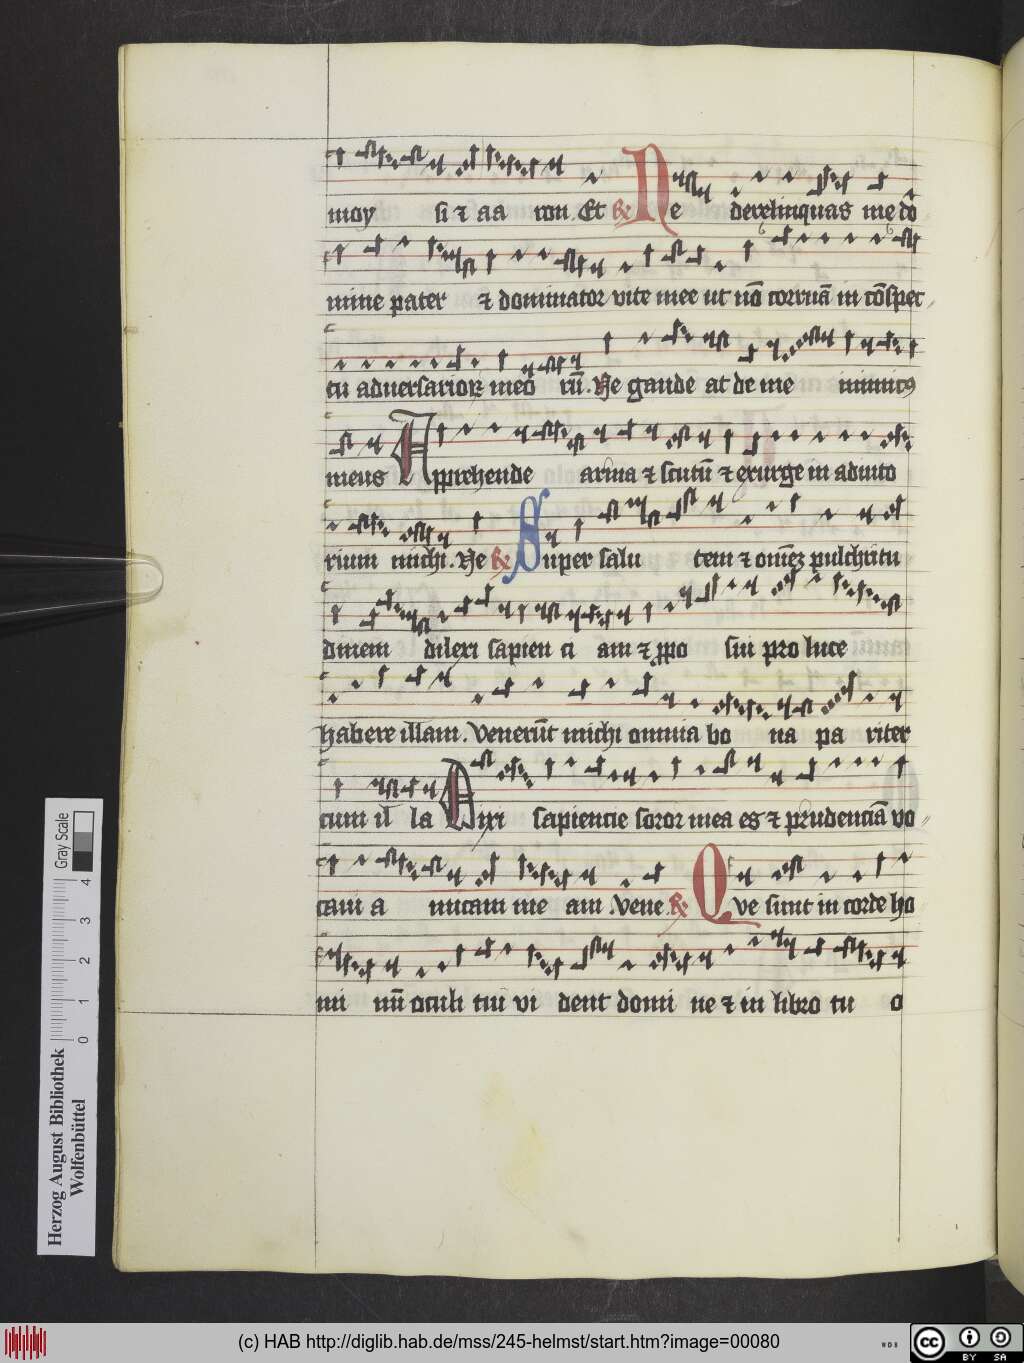 moy si ⁊ aa ron Et R Ne derelinquas me do
mine pater ⁊ dominator vite mee ut nō corruā in cōspec
tu adversarioꝝ meo rū. Ne gaude at de me inimicꝰ
meus Apprehende arma ⁊ scutū ⁊ exurge in adiuto
rium michi. Ne R Super salu tem ⁊ omēꝫ pulchritu
dinem dilexi sapien ci am ⁊ ꝓpo sui pro luce
habere illam. Venerūt michi omnia bo na pa riter
cum il la Dixi sapiencie soror mea es ⁊ prudenciā vo
cavi a micam me am. Vene R Que sunt in corde ho
mi nū oculi tui vi dent domi ne ⁊ in libro tu o
Herzog August Bibliothek
Wolfenbüttel
0 1 2 3 4
Gray Scale
(c) HAB http://diglib.hab.de/mss/245-helmst/start.htm?image=00080
WDB
cc BY SA